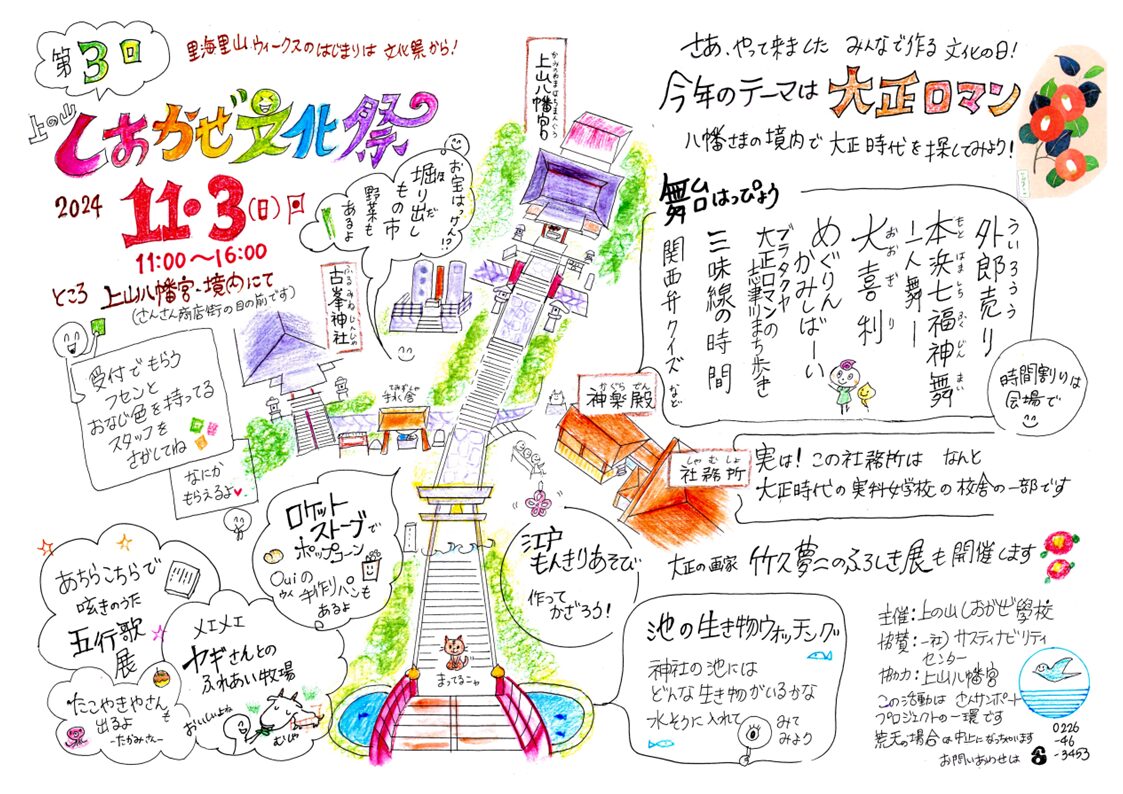 第3回
里海里山ウィークスのはじまりは 文化祭から!
上の山
しおかぜ文化祭
2024
11・3(日)
11:00～16:00
ところ 上山八幡宮・境内にて
(さんさん商店街の目の前です)
受付でもらう
フセンと
おなじ色を持ってる
スタッフを
さがしてね
なにか
もらえるよ♥
お宝はっけん!?
掘り出し
ほ だ
もの市
野菜も
あるよ
上山八幡宮
かみのやまはちまんぐう
古峯神社
ふるみねじんじゃ
手水舎
てみずしゃ
神楽殿
かぐらでん
社務所
しゃむしょ
さあ、やって来ました みんなで作る 文化の日!
今年のテーマは 大正ロマン
八幡さまの境内で 大正時代を探してみよう!
舞台はっぴょう
外郎売り
ういろううり
本浜七福神舞
もとはましちふくじんまい
ー二人舞ー
大喜利
おおぎり
めぐりんばーい
かみしばい
ブラタカヤ
大正ロマンの
志津川まち歩き
三味線の時間
関西弁クイズ など
時間割りは
会場で
実は!この社務所は なんと
大正時代の実科女学校の校舎の一部です
大正の画家 竹久夢二のふろしき展も開催します
江戸
もんきりあそび
作って
かざろう!
池の生き物ウォッチング
神社の池には
どんな生き物がいるかな
水そうに入れて
みて
みよう
ロケット
ストーブで
ポップコーン
Ouiの
ウィ
手作りパンも
あるよ
あちらこちらで
呟きのうた
五行歌
展
メェメェ
ヤギさんとの
ふれあい牧場
おいしいよね
むしゃ
たこやきやさん
も
出るよ
-たかみさん-
まってるニャ
主催:上の山しおかぜ學校
協賛:一社)サスティナビリティ
センター
協力:上山八幡宮
この活動は さんサンポート
プロジェクトの一環です
荒天の場合は中止になっちゃいます
お問いあわせは ☎
0226
-46
-3453